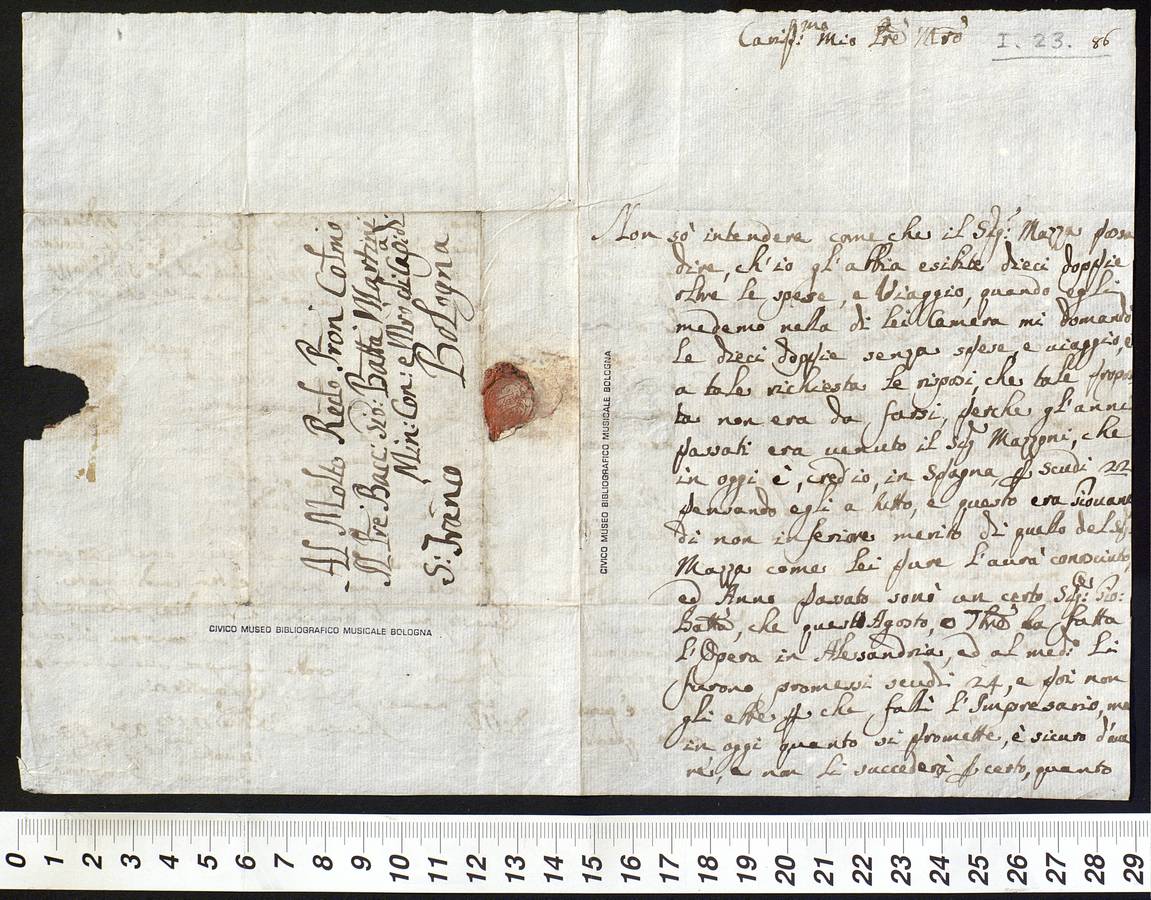 Cariss:mo Mio Pre Mro
I. 23. 86
Al Molto Recdo Pron Colmo
Il Pre Bacc: Gio: Batta Martini
Min: Con: e Mro di Cap: di
S: Franco Bologna
CIVICO MUSEO BIBLIOGRAFICO MUSICALE BOLOGNA
CIVICO MUSEO BIBLIOGRAFICO MUSICALE BOLOGNA
Non sò intendere come che il Sig:r Mazza possa
dire, ch'io gl'abbia esibite dieci doppie
oltre le spese, e Viaggio, quando egli
medemo nella di lei Camera mi domandò
le dieci doppie senza spese, e viaggio, e
a tale richiesta le risposi, che tale propos
ta non era da farsi, perche gl'anni
passati era venuto il Sig:r Mazzoni, che
in oggi è, credio, in Spagna p scudi 22
pensando egli a tutto, e questo era giovane
di non inferiore merito di quello del Sig:r
Mazza come lei pure l'avrà conosciuto,
ed Anno passato sonò un certo Sig:r Gio:
Batta, che quest'Agosto, o 7bre ha fatta
l'Opera in Alessandria, ed al med:o li
furono promessi scudi 24, e poi non
gli ebbe p che fallì l'Impresario, ma
in oggi quanto si promette, è sicuro d'ave
re, e non li succederà p certo, quanto
0 1 2 3 4 5 6 7 8 9 10 11 12 13 14 15 16 17 18 19 20 21 22 23 24 25 26 27 28 29